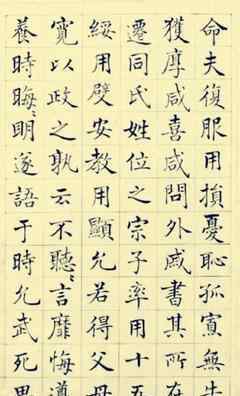 命夫復服用損憂恥孤寡無
獲厚咸喜咸問外戚書其所在
遷同氏姓位之宗子率用十五
綏用安教用顯允若得父母
寬以政之孰云不聽〻言靡悔遵
養時晦〻明遂語于時允武死思